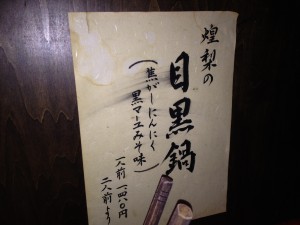 煌梨の
目黒鍋
(焦がしにんにく
黒マーユみそ味)
一人前 一四八〇円
二人前より